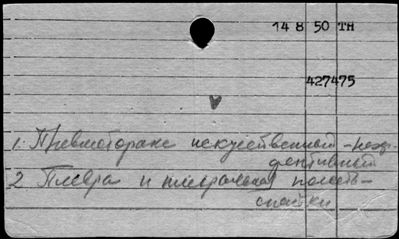 14 8 50 TH
427475
1. Пневмоторакс искусственный - неэф-
фективный
2 Плевра и плевральная полость -
спайки